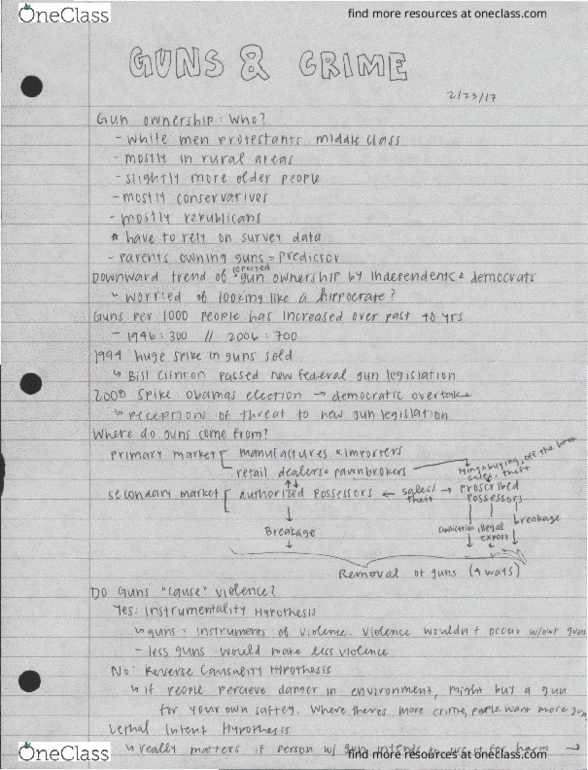 OneClass
find more resources at oneclass.com
GUNS & CRIME
2/23/17
Gun ownership: Who?
- white men protestants middle class
- mostly in rural areas
- slightly more older people
- mostly conservatives
- mostly republicans
* have to rely on survey data
- parents owning guns = predictor
Downward trend of reported gun ownership by independents & democrats
↳ worried of looking like a hippocrate?
Guns per 1000 people has increased over past 40 yrs
- 1946: 300 // 2006: 700
1994 huge spike in guns sold
↳ Bill Clinton passed new federal gun legislation
2000 spike: Obamas election → democratic overtake
↳ perceptions of threat to new gun legislation
Where do guns come from?
primary market [ manufactures & importers
retail dealers & pawnbrokers
lying & buying, off the
sales, theft
secondary market [ authorized possessors ← sales/theft → proscribed possessors
Breakage
illegal export
breakage
Removal of guns (4 ways)
Do Guns "cause" violence?
Yes: Instrumentality Hypothesis
↳ guns = instruments of violence. Violence wouldn't occur w/out guns
- less guns would make less violence
No: Reverse Causality Hypothesis
↳ if people percieve danger in environment, might buy a gun
for your own saftey. Where theres more crime, people want more guns
Lethal Intent Hypothesis
↳ really matters if person w/ gun intends to use it for harm →
OneClass
find more resources at oneclass.com